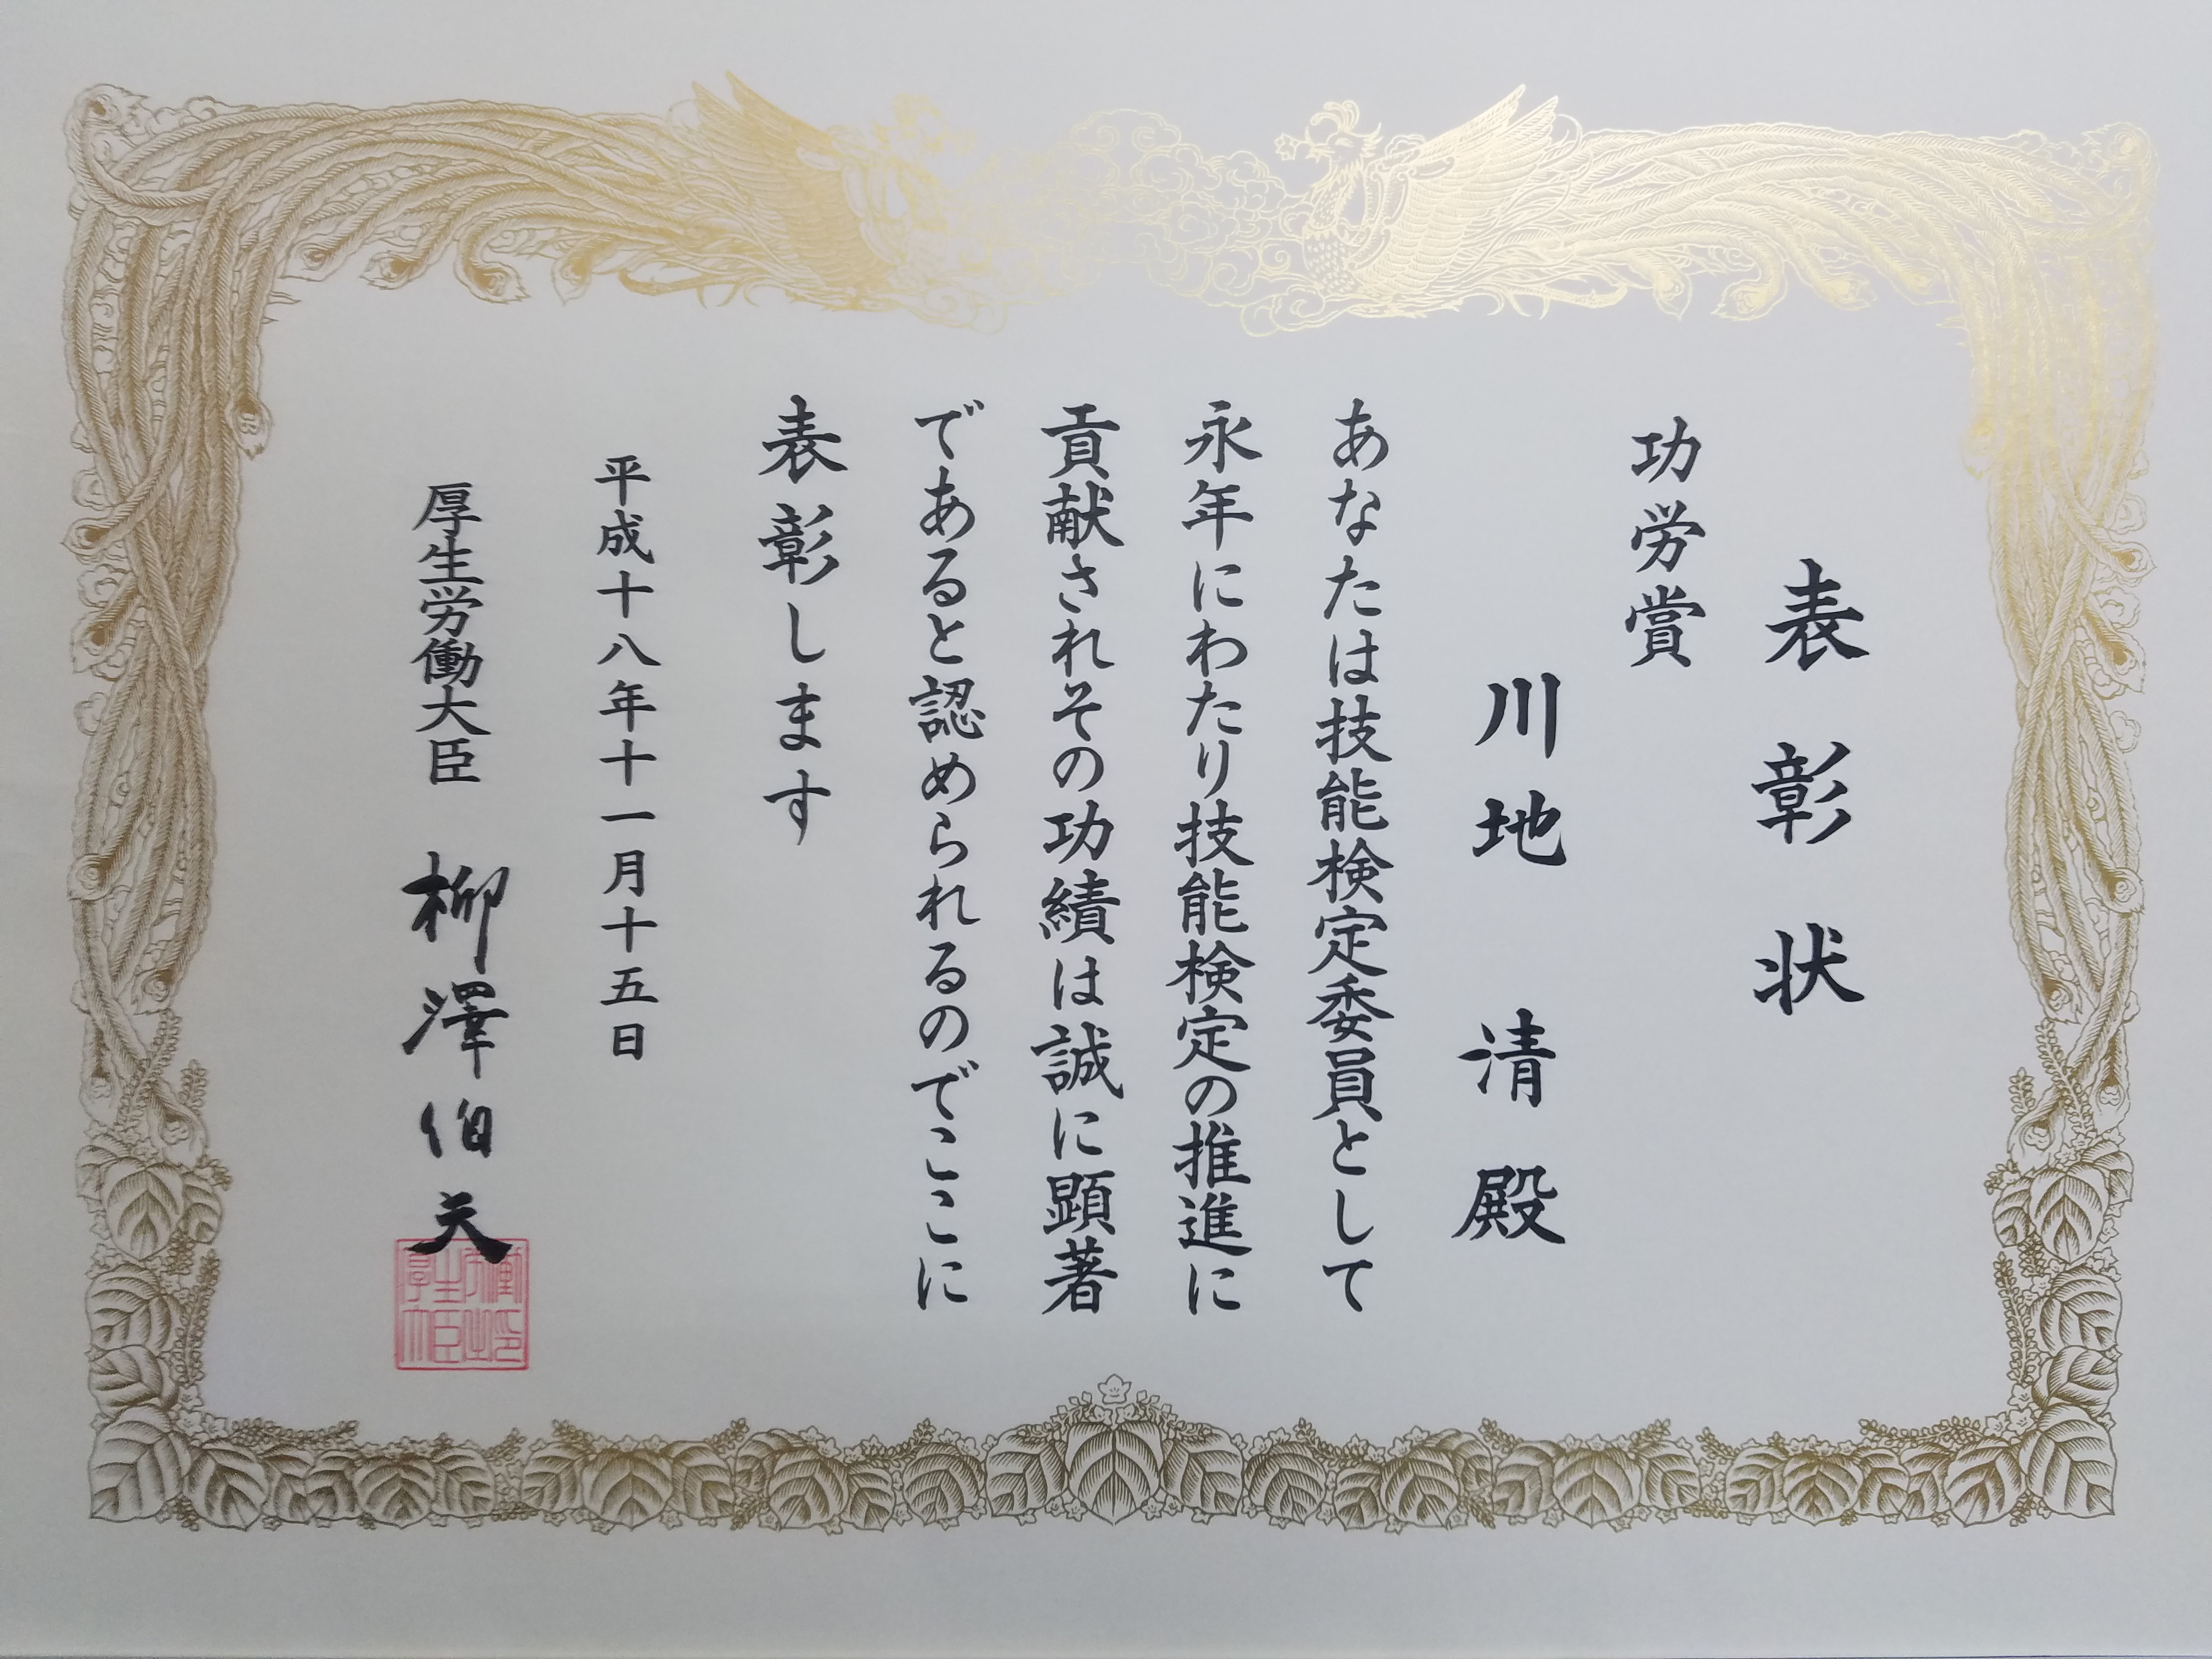 表彰状
功労賞
川地 清 殿
あなたは技能検定委員として
永年にわたり技能検定の推進に
貢献されその功績は誠に顕著
であると認められるのでここに
表彰します
平成十八年十一月十五日
厚生労働大臣 柳澤伯夫